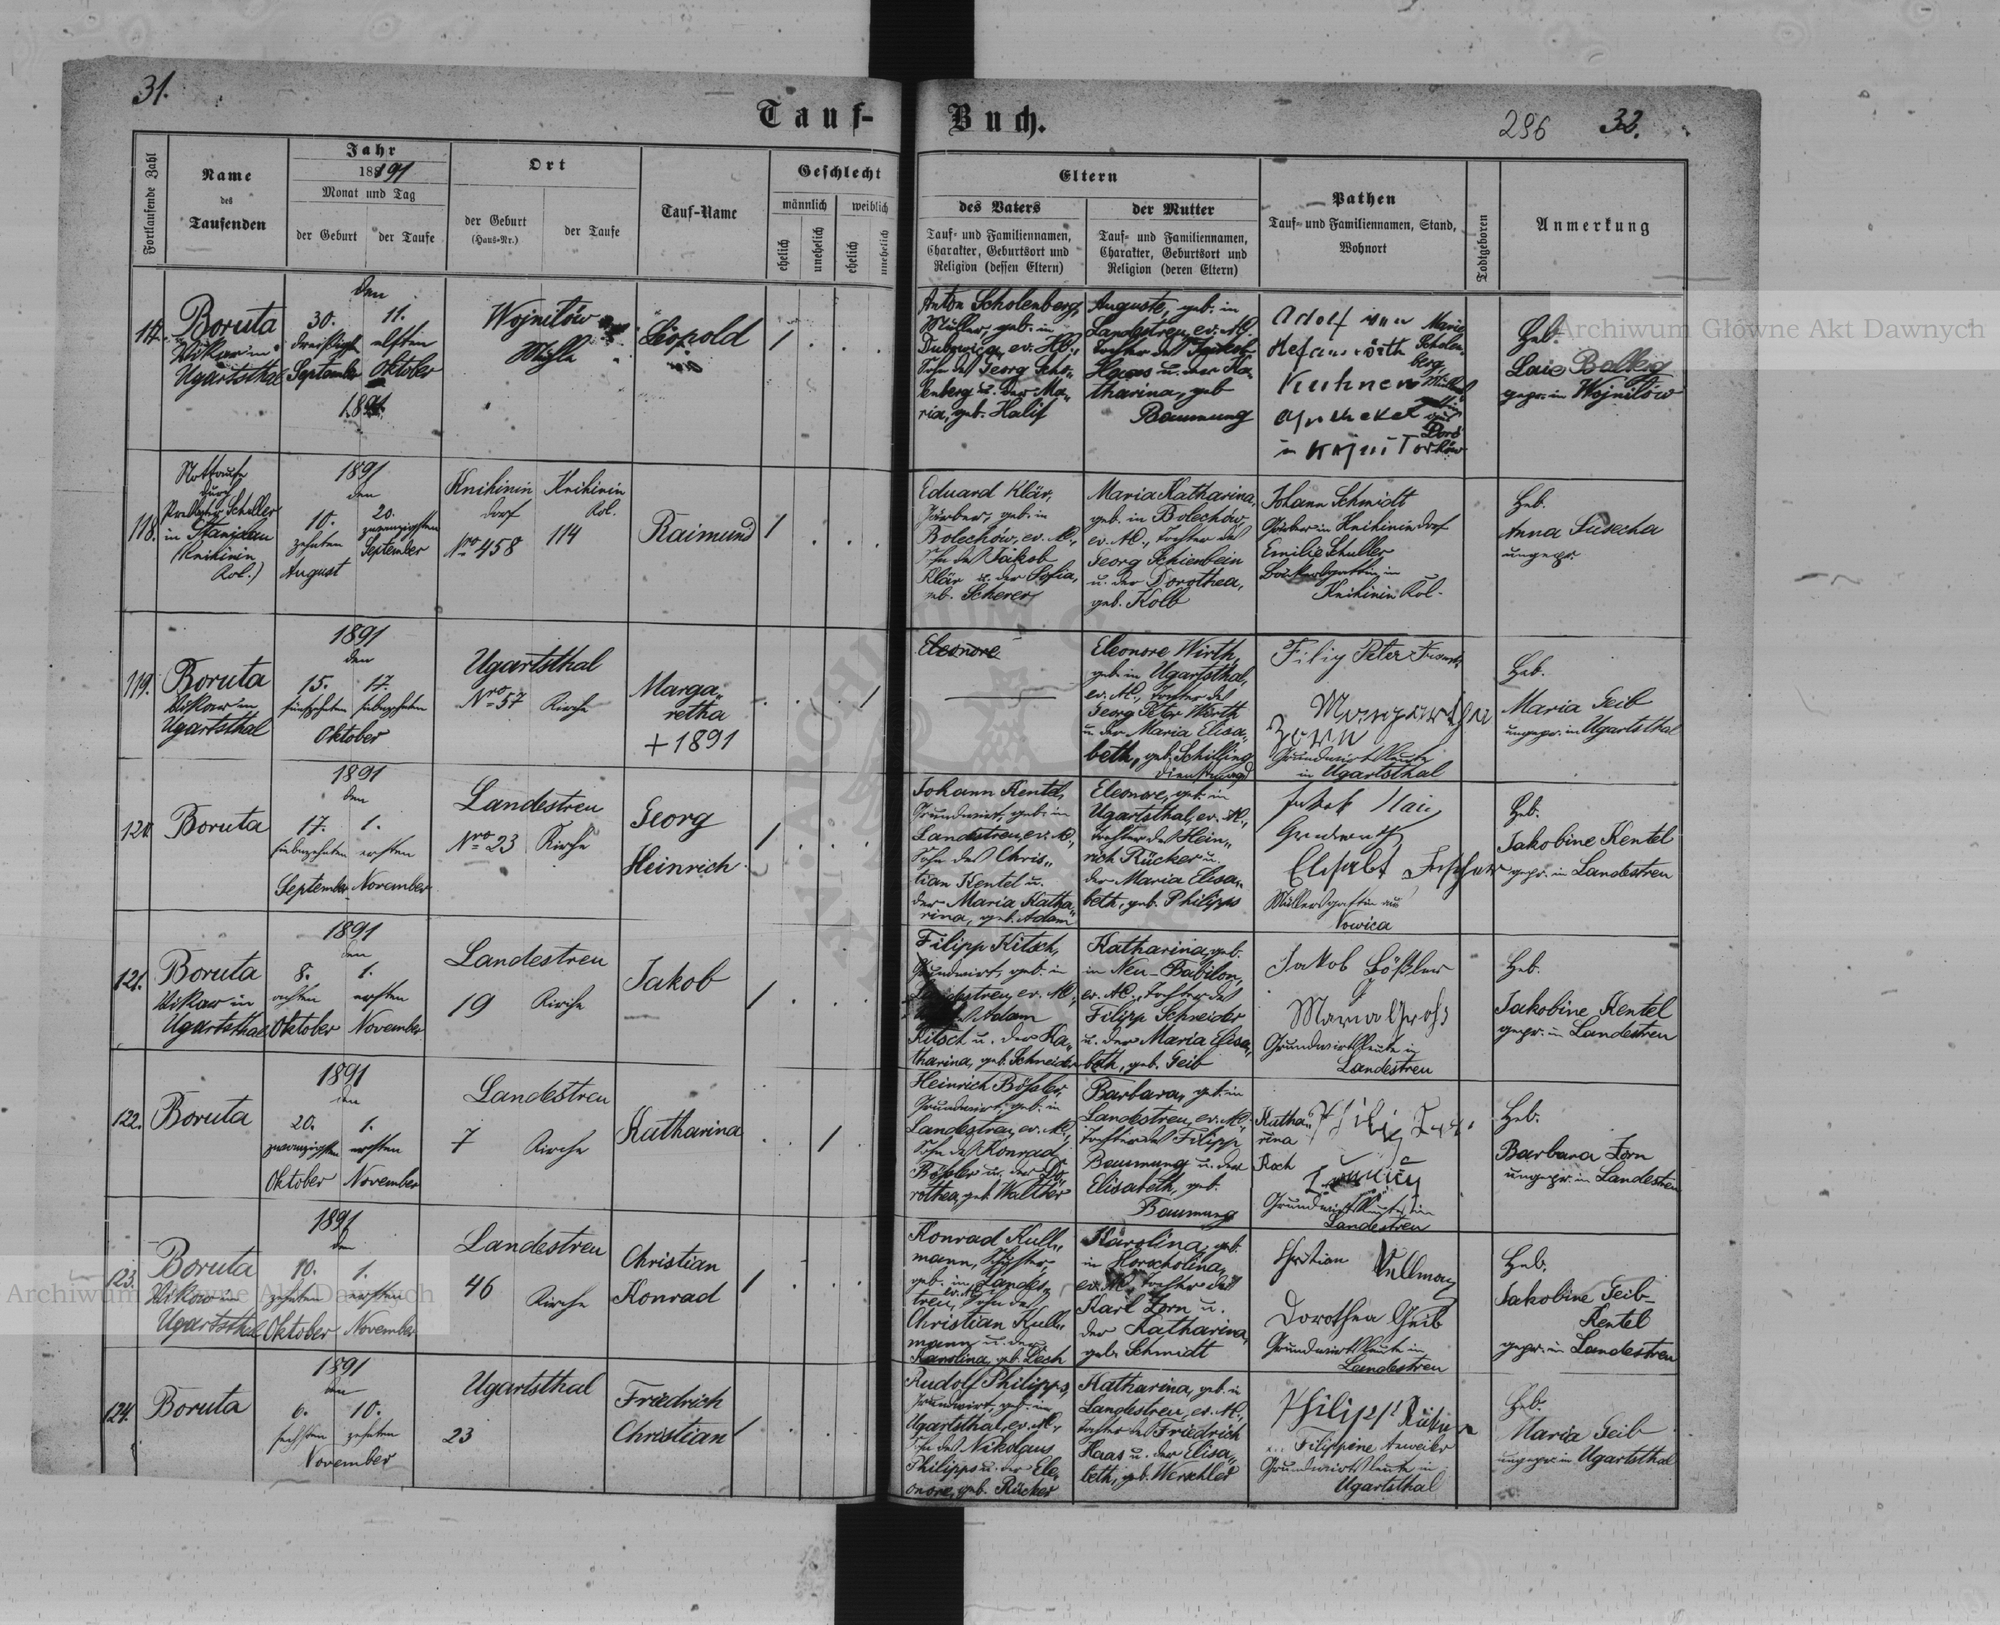 31.
Tauf-Buch.
296 32.
Fortlaufende Zahl
Name
des
Taufenden
Jahr
1891
Monat und Tag
der Geburt
der Taufe
Ort
der Geburt
(Haus-Nr.)
der Taufe
Tauf-Name
Geschlecht
männlich
weiblich
ehelich
unehelich
ehelich
unehelich
Eltern
des Vaters
Tauf- und Familiennamen,
Charakter, Geburtsort und
Religion (dessen Eltern)
der Mutter
Tauf- und Familiennamen,
Charakter, Geburtsort und
Religion (deren Eltern)
Pathen
Tauf- und Familiennamen, Stand,
Wohnort
Todtgeboren
Anmerkung
117.
Boruta
Vikar in
Ugartsthal
den
30. 11.
dreißigst elften
September Oktober
1891
Wojnilów
Mühle
Leopold
1
Anton Scholenberg,
Müller, geb. in
ev. HB.,
Sohn des Georg Scho-
lenberg u. der Ma-
ria, geb. Halif
Auguste, geb. in
Landestreu, ev. HB.
Tochter des Jakob
Haas u. der Ka-
tharina, geb.
Baumung
Adolf von
Marie
Scholen-
berg,
Apotheker
Heb.
gepr. in Wojnilów
118.
Nottaufe
durch
Schuller
in Stanislau
(Knihinin
Kol.)
1891
den
10. 20.
zehnten zwanzigsten
August September
Knihinin
Dorf
Nro 458
Knihinin
Kol.
114
Raimund
1
Eduard Klär,
Färber, geb. in
Bolechów, ev. AC.,
Sohn des Jakob
Klär u. der Sofia,
geb. Scherer
Maria Katharina,
geb. in Bolechów,
ev. AC., Tochter des
Georg Schienbein
u. der Dorothea,
geb. Kolb
Johann Schmidt
Färber in Knihinin Dorf
Emilie Schuller
Bäckersgattin in
Knihinin Kol.
Heb.
Anna
ungepr.
119.
Boruta
Vikar in
Ugartsthal
1891
den
15. 17.
fünfzehnten siebzehnten
Oktober
Ugartsthal
Nro 57 Kirche
Marga-
retha
+ 1891
1
Eleonore
Eleonore Wirth,
geb. in Ugartsthal,
ev. AC., Tochter des
Georg Peter Wirth
u. der Maria Elisa-
beth, geb. Schilling
Dienstmagd
Filip Peter
Margaretha
Zorn
Grundwirtsleute
in Ugartsthal
Heb.
Maria Geib
ungepr. in Ugartsthal
120.
Boruta
1891
den
17. 1.
siebzehnten ersten
September November
Landestreu
Nro 23 Kirche
Georg
Heinrich
1
Johann Kentel,
Grundwirt, geb. in
Landestreu, ev. AC.,
Sohn des Chris-
tian Kentel u.
der Maria Katha-
rina, geb. Adam
Eleonore, geb. in
Ugartsthal, ev. AC.,
Tochter des Hein-
rich Rücker u.
der Maria Elisa-
beth, geb. Philipps
Jakob
Elisabet
Müllersgattin aus
Nowica
Heb.
Jakobine Kentel
gepr. in Landestreu
121.
Boruta
Vikar in
Ugartsthal
1891
den
8. 1.
achten ersten
Oktober November
Landestreu
19 Kirche
Jakob
1
Filipp Kitsch,
Grundwirt, geb. in
Landestreu, ev. AC.,
Adam
Kitsch u. der Ka-
tharina, geb. Schneider
Katharina, geb.
in Neu-Babilon,
ev. AC., Tochter des
Filipp Schneider
u. der Maria Elisa-
beth, geb. Geib
Jakob Bößler
Maria Groß
Grundwirtsleute in
Landestreu
Heb.
Jakobine Kentel
gepr. in Landestreu
122.
Boruta
1891
den
20. 1.
zwanzigsten ersten
Oktober November
Landestreu
7 Kirche
Katharina
1
Heinrich Bößler,
Grundwirt, geb. in
Landestreu, ev. AC.,
Sohn des Konrad
Bößler u. der Do-
rothea, geb. Walther
Barbara, geb. in
Landestreu, ev. AC.,
Tochter des Filipp
Baumung u. der
Elisabeth, geb.
Baumung
Katha-
rina
Koch
Grundwirtsleute in
Landestreu
Heb.
Barbara Zorn
ungepr. in Landestreu
123.
Boruta
Vikar in
Ugartsthal
1891
den
10. 1.
zehnten ersten
Oktober November
Landestreu
46 Kirche
Christian
Konrad
1
Konrad Kull-
mann, Schuster,
geb. in Landes-
ev. AC.
treu, Sohn des
Christian Kull-
mann u. der
Karolina, geb. Lech
Karolina, geb.
in Horocholina,
ev. AC., Tochter des
Karl Zorn u.
der Katharina,
geb. Schmidt
Christian Kullmann
Dorothea Geib
Grundwirtsleute in
Landestreu
Heb.
Jakobine Geib-
Kentel
gepr. in Landestreu
124.
Boruta
1891
den
6. 10.
sechsten zehnten
November
Ugartsthal
23
Friedrich
Christian
1
Rudolf Philipps,
Grundwirt, geb. in
Ugartsthal, ev. AC.,
Sohn des Nikolaus
Philipps u. der Ele-
onore, geb. Rücker
Katharina, geb. in
Landestreu, ev. AC.,
Tochter des Friedrich
Haas u. der Elisa-
beth, geb. Werschler
Philipp Rücker
Filippine Anweiler
Grundwirtsleute in
Ugartsthal
Heb.
Maria Geib
ungepr. in Ugartsthal
Archiwum Główne Akt Dawnych
Archiwum Główne Akt Dawnych